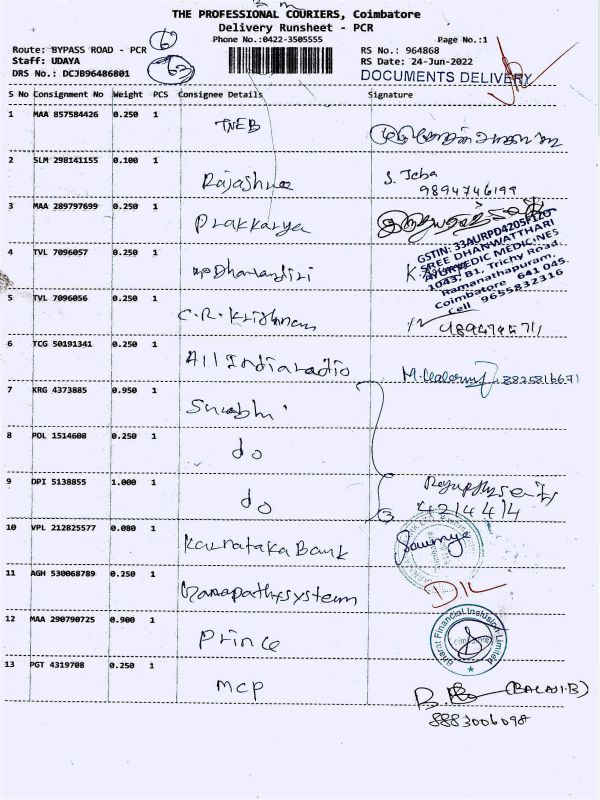 THE PROFESSIONAL COURIERS, Coimbatore
Delivery Runsheet - PCR
Phone No.:0422-3505555
Page No.:1
Route: BYPASS ROAD - PCR
Staff: UDAYA
DRS No.: DCJB96486801
63
RS No.: 964868
RS Date: 24-Jun-2022
DOCUMENTS DELIVERY
S No Consignment No Weight PCS Consignee Details Signature
1 MAA 857584426 0.250 1 TNEB
2 SLM 298141155 0.100 1 Rajashree S. Jeba
9894746199
3 MAA 289797699 0.250 1 Prakkarya
GSTIN: 33AURPD4205F1ZO
SREE DHANWATTHARI
AYURVEDIC MEDICINES
1043, B1, Trichy Road,
Ramanathapuram,
Coimbatore - 641 045.
Cell 9655832316
4 TVL 7096057 0.250 1 Dhanvandiri
5 TVL 7096056 0.250 1 C.R. Krishnan
6 TCG 50191341 0.250 1 All India radio 8825816671
7 KRG 4373885 0.950 1 Surabhi
8 POL 1514608 0.250 1 do
9 DPI 5138855 1.000 1 do
4214414
10 VPL 212825577 0.080 1 Karnataka Bank Sowmya
11 AGH 530068789 0.250 1 Ganapathy system
12 MAA 290790725 0.900 1 Prince
Bharat Financial Inclusion Limited
13 PGT 4319708 0.250 1 MCP
(BALAJI.B)
8883006098